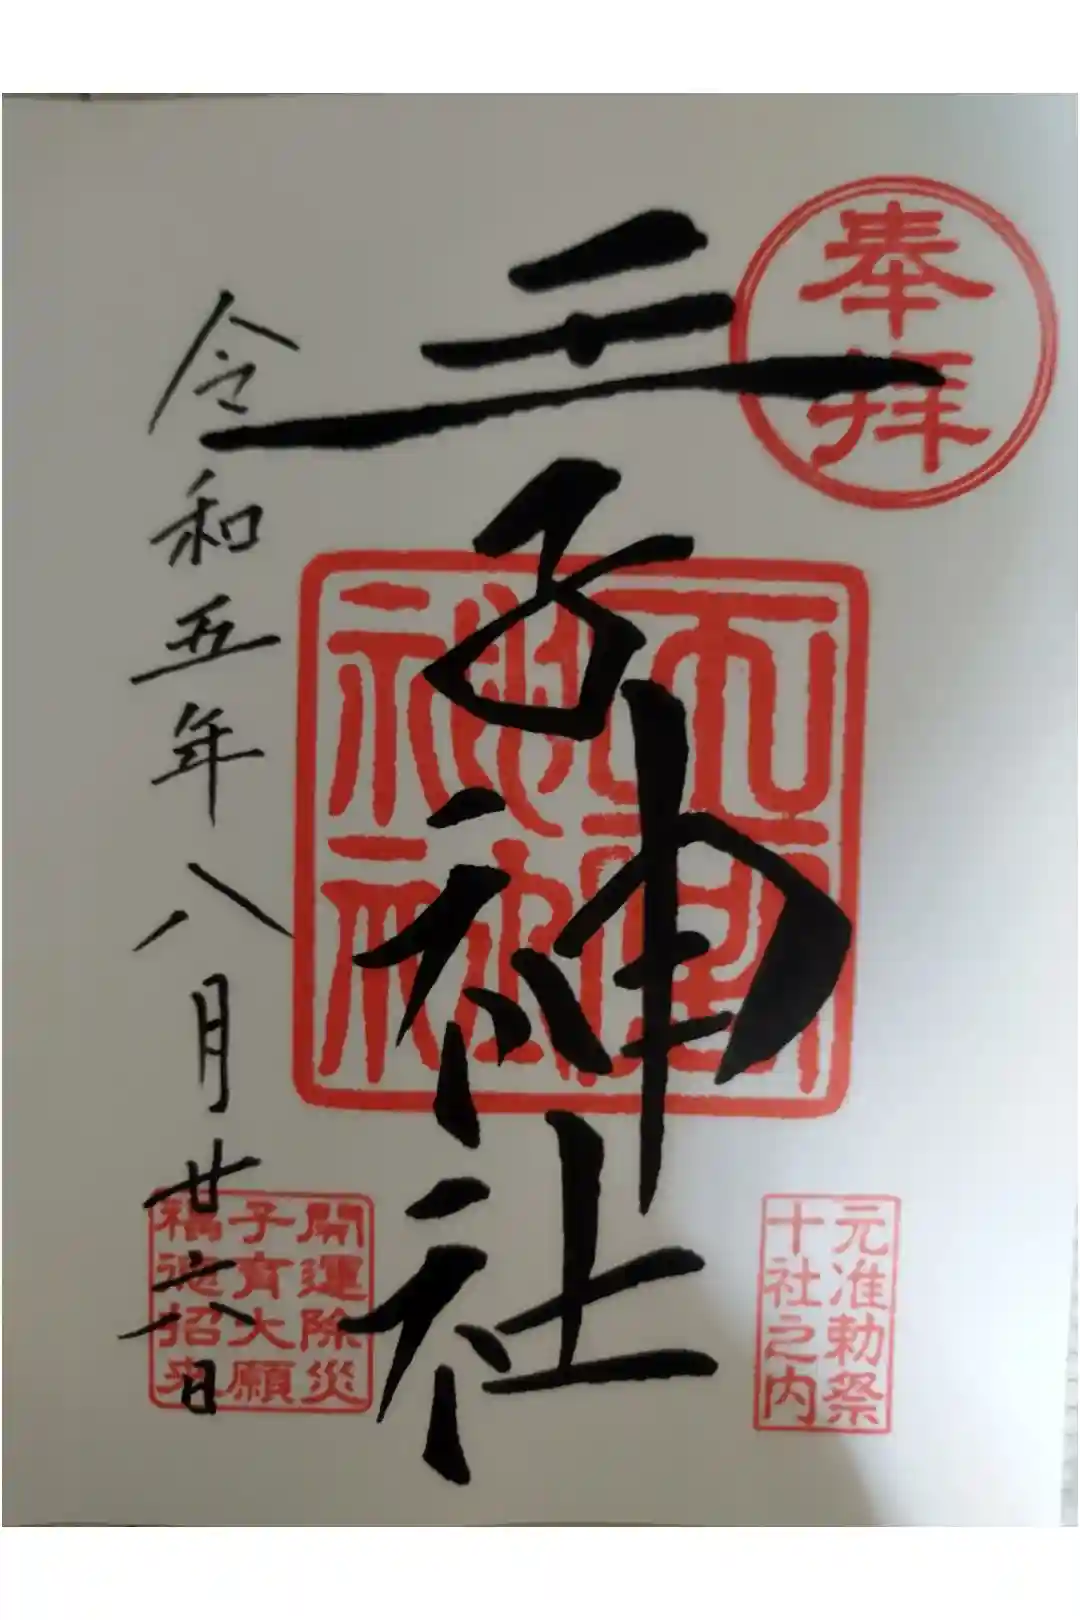 奉拝
元准勅祭
十社之内
王子神社
開運除災
子育大願
福徳招来
令和五年八月廿六日